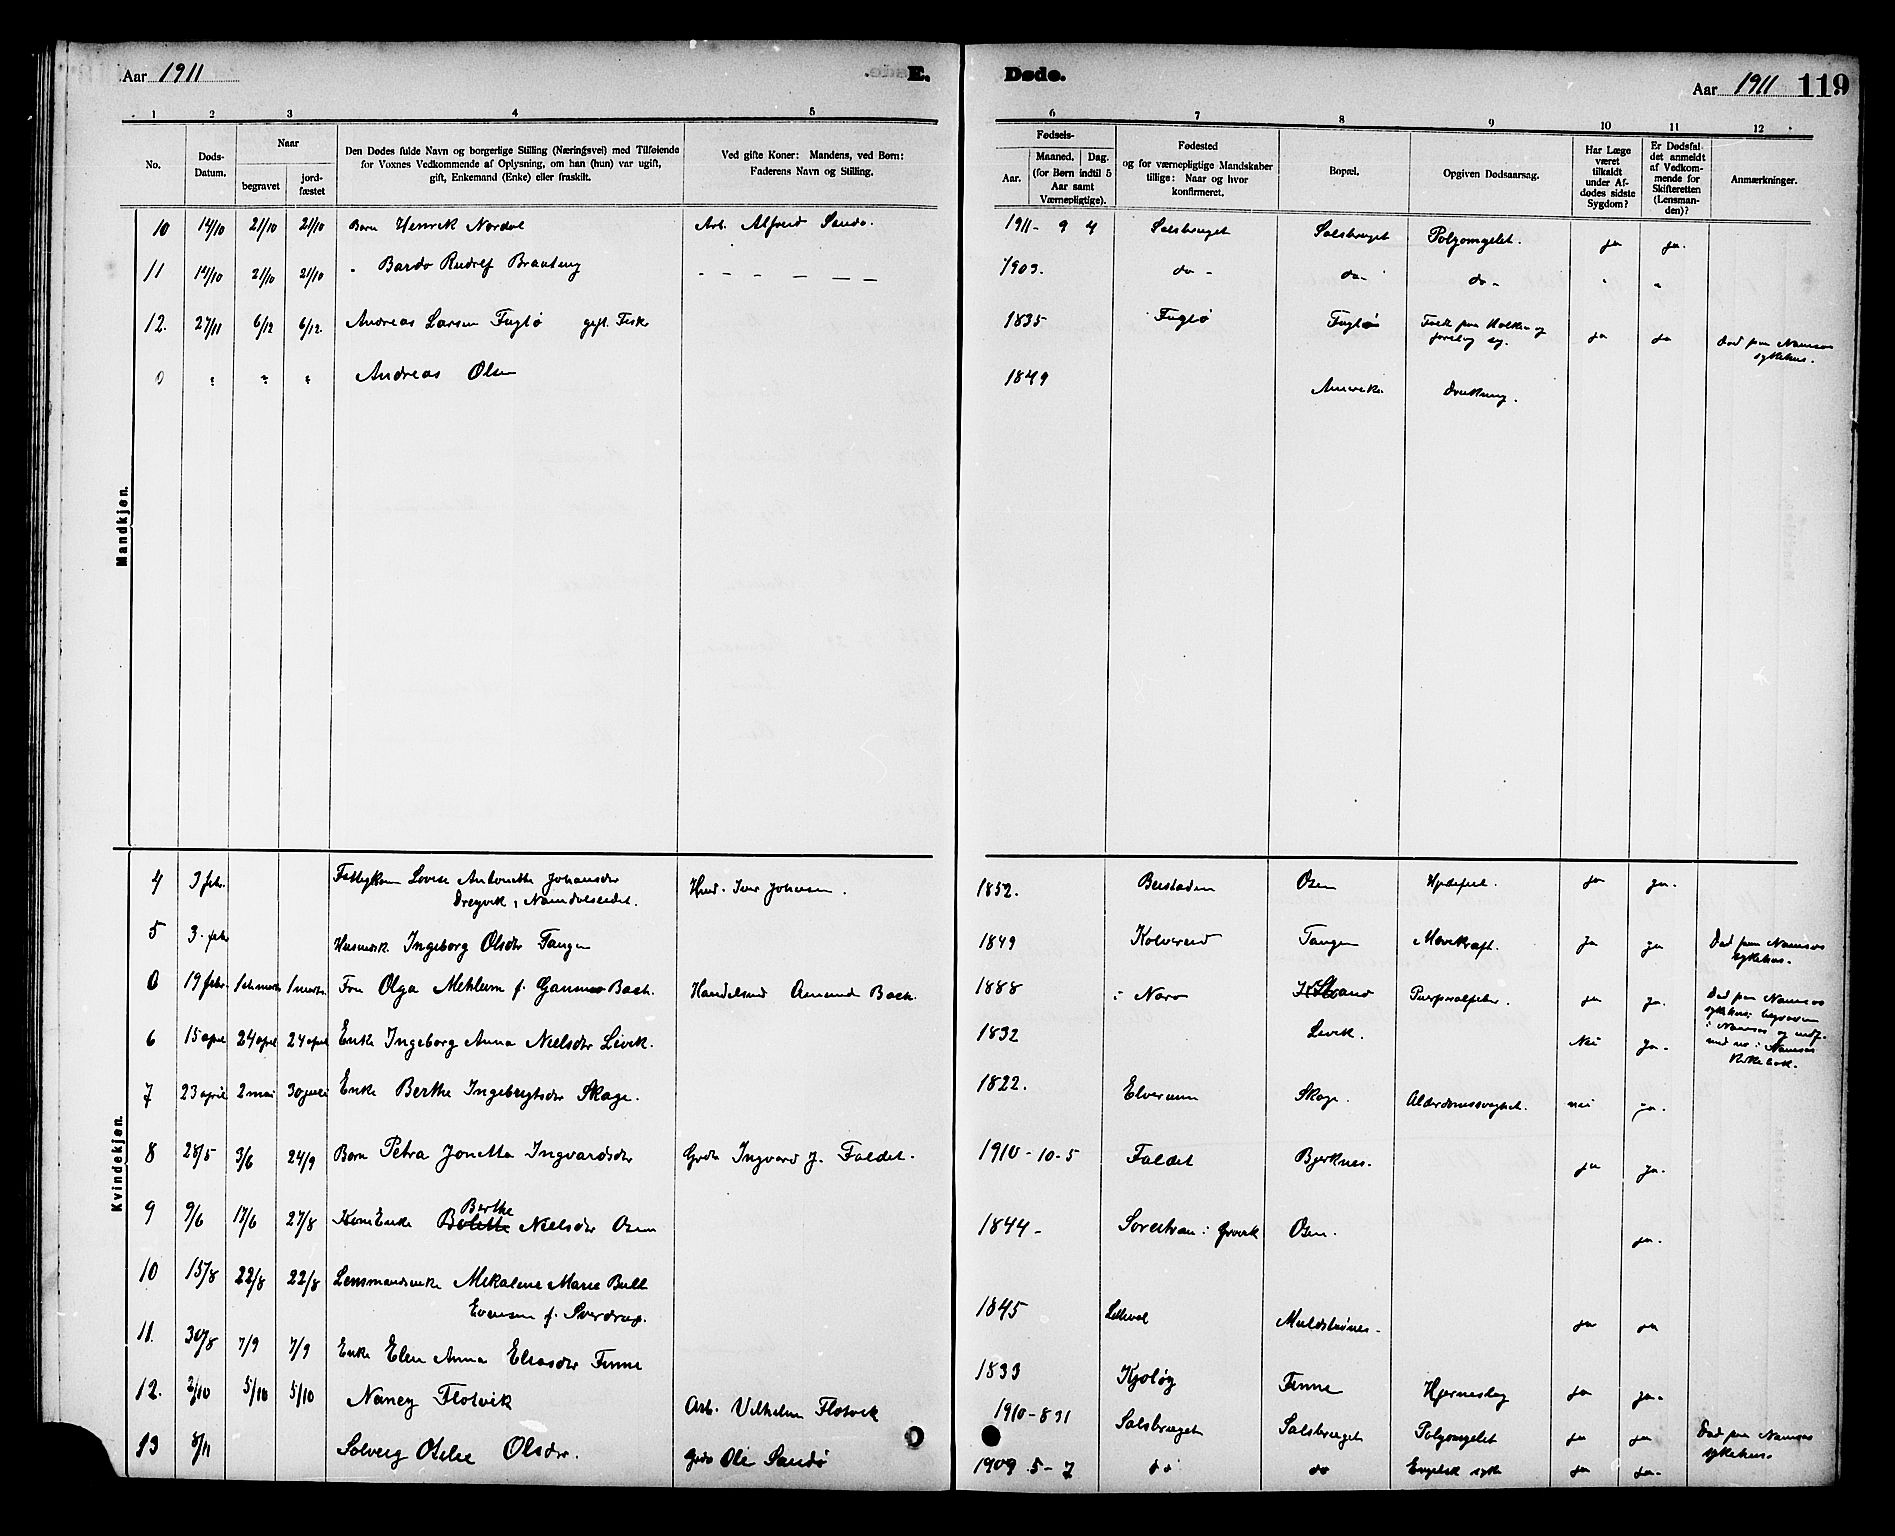 Aar 1911
E.
Døde.
Aar 1911 119
1 2 3 4 5 6 7 8 9 10 11 12
No.
Døds-
Datum.
Naar
begravet
jord-
fæstet
Den Dødes fulde Navn og borgerlige Stilling (Næringsvei) med Tilføiende
for Voxnes Vedkommende af Oplysning, om han (hun) var ugift,
gift, Enkemand (Enke) eller fraskilt.
Ved gifte Koner: Mandens, ved Børn:
Faderens Navn og Stilling.
Fødsels-
Aar.
Maaned. Dag.
(for Børn indtil 5
Aar samt
Værnepligtige).
Fødested
og for værnepligtige Mandskaber
tillige: Naar og hvor
konfirmeret.
Bopæl.
Opgiven Dødsaarsag.
Har Læge
været
tilkaldt
under Af-
dødes sidste
Sygdom?
Er Dødsfal-
det anmeldt
af Vedkom-
mende for
Skifteretten
(Lensman-
den)?
Anmærkninger.
Mandkjøn.
10 14/10 21/10 21/10 Barn Henrik Nordal Arb. Alfred Sandø. 1911- 9 4 Salsbruget Salsbruget ja ja.
11 14/10 21/10 21/10 " Bardo Rudolf 1903. do - do - do -
12. 27/11 6/12 6/12. Andreas Larsen Fuglø gift. Fisk 1835 Fuglø Fuglø ja ja Død paa Namsos
sykehus.
0 " " " Andreas Olsen 1849 Drukning.
Kvindekjøn.
4 3 febr. Lovise Antonette Johansdtr Husd. Iver Johnsen. 1852. Beistaden Osen Hjertefeil. ja ja.
Namdalseidet.
5 3. febr Ingeborg Olsdtr Tangen 1849 Kolvereid Tangen Mavekræft. ja ja Død paa Namsos
sykehus.
0 19 febr. 1ste marts. 1 marts. Fru Olga Mehlum f. Bach. Handelsmd Amund Bach. 1888 i Nærø Strand Puerperalfeber. ja ja. Død paa Namsos
sykehus; begraven
i Namsos og indf.
med no i Namsos
Kirkebok.
6 15 april 24 april 24 april Enke Ingeborg Anna Nielsdtr Levik. 1832 Levik. Nei ja.
7 23 april 2 mai 30 juli Enke Berthe Ingebrigtsdtr Skage. 1822. Elverum Skage. Alderdomssvaghet. nei ja.
8 28/5 3/6 24/9 Barn Petra Jonetta Ingvardsdtr Grdb Ingvard J. Faldet. 1910-10-5 Faldet Bjerknes. ja ja.
9 9/6 17/6 27/8 Kone Enke Bolette Berthe Nielsdtr Osen 1844 - Osen. ja.
10 15/8 22/8 22/8 Lensmandsenke Mekaline Marie Bull
Evensen f. Sverdrup. 1845 ja ja
11. 30/8 7/9 7/9 Enke Elen Anna Eliasdtr Finne 1833 Kjoløy Finne Hjerneslag ja ja.
12. 2/10 5/10 5/10 Nancy Flotvik Arb. Vilhelm Flotvik 1910-8 31 Salsbruget Salsbruget ja ja Død paa Namsos
sykehus.
13 8/11 Solveig Otelie Olsdtr. Grdb Ole Sandø 1909 5-7 do do Engelsk syke ja ja.